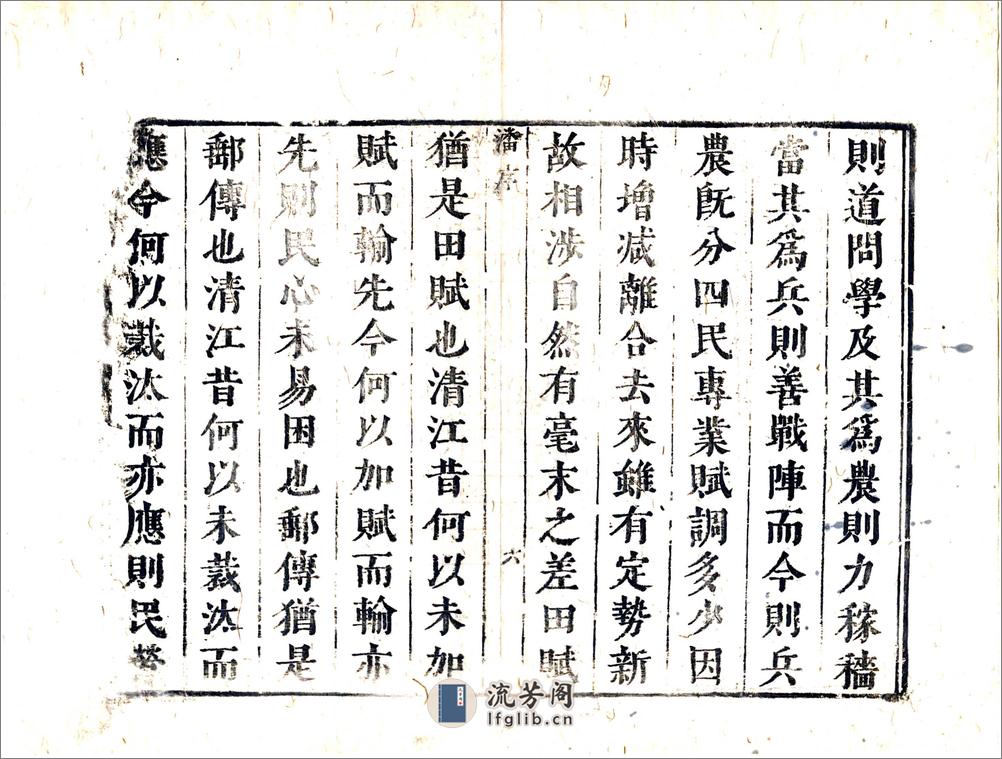 則道問學及其爲農則力稼穡
當其爲兵則善戰陣而今則兵
農旣分四民專業賦調多少因
時增減離合去來雖有定勢新
故相渉自然有毫末之差田賦
潘序
六
猶是田賦也清江昔何以未加
賦而輸先今何以加賦而輸亦
先則民心未易困也郵傳猶是
郵傳也清江昔何以未裁汰而
應今何以裁汰而亦應則民勞
流芳阁
lfglib.cn